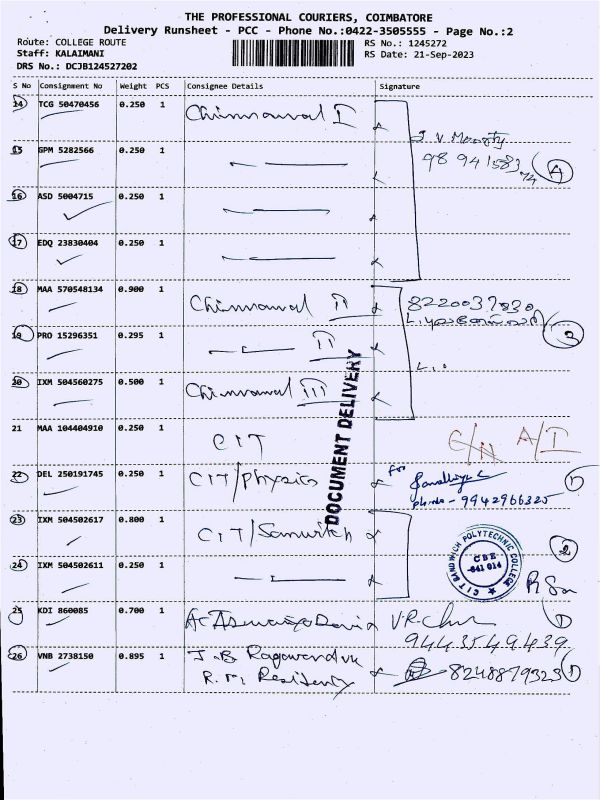 THE PROFESSIONAL COURIERS, COIMBATORE
Delivery Runsheet - PCC - Phone No.:0422-3505555 - Page No.:2
Route: COLLEGE ROUTE RS No.: 1245272
Staff: KALAIMANI RS Date: 21-Sep-2023
DRS No.: DCJB124527202
S No Consignment No Weight PCS Consignee Details Signature
14 TCG 50470456 0.250 1 Chinnavual I
15 GPM 5282566 0.250 1
98 941583 4
16 ASD 5004715 0.250 1
17 EDQ 23830404 0.250 1
18 MAA 570548134 0.900 1 Chinnavual II 8220037830
19 PRO 15296351 0.295 1 II 3
20 IXM 504560275 0.500 1 Chinnavual III
DOCUMENT DELIVERY
21 MAA 104404910 0.250 1 CIT A/I
22 DEL 250191745 0.250 1 CIT/Physics for
9942966325
23 IXM 504502617 0.800 1 CIT/Sanwitch
CIT SANDWICH POLYTECHNIC COLLEGE
CBE
-641 014
2
24 IXM 504502611 0.250 1
25 KDI 860085 0.700 1 V.R. 1
9443549439
26 VNB 2738150 0.895 1 J.B 8248879323 1
R.M. Residency